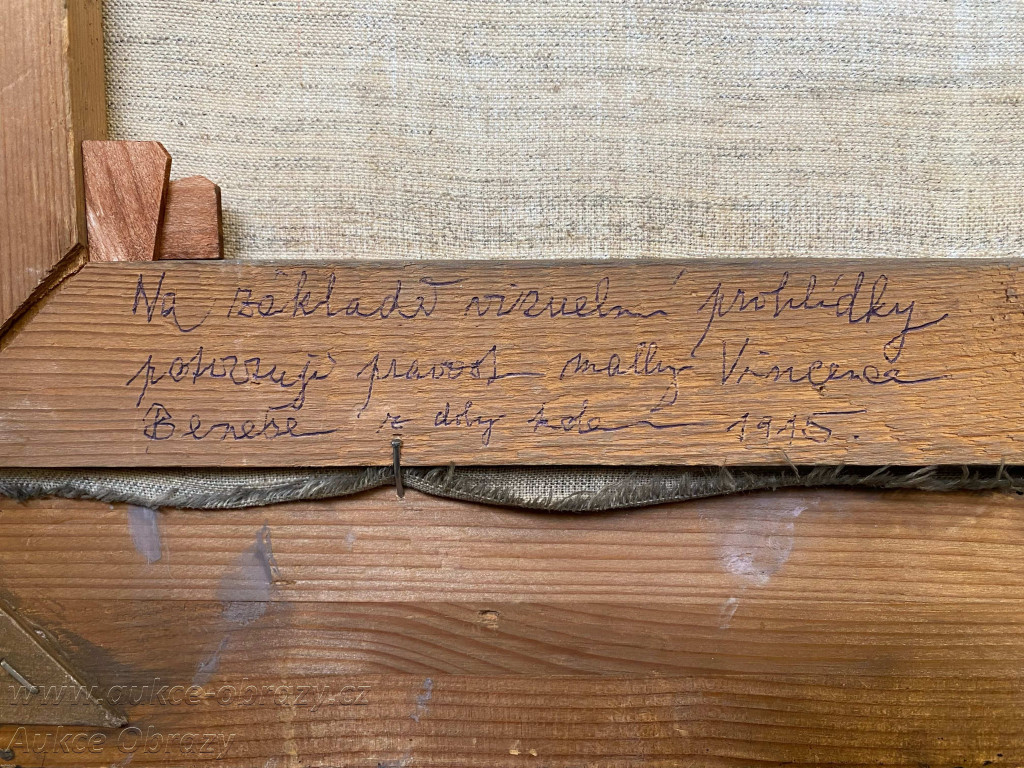 Na základě vizuelní prohlídky
potvrzuji pravost malby Vincence
Beneše z doby kolem 1915.
www.aukce-obrazy.cz
Aukce Obrazy